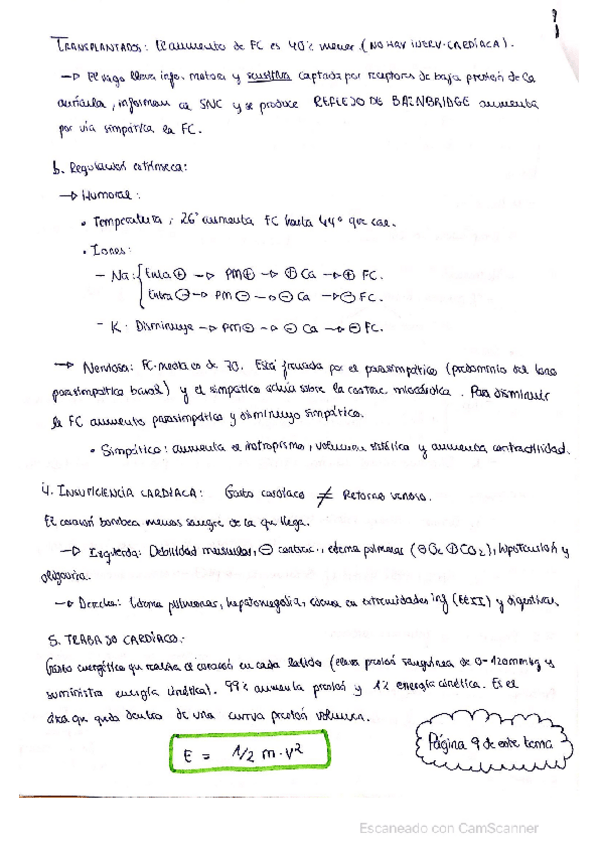 TRANSPLANTADOS: El aumento de FC es 40% menor (NO HAY INERV. CARDÍACA).
→ El vago lleva info. motora y sensitiva captada por receptores de baja presión de la
aurícula, informan al SNC y se produce REFLEJO DE BAINBRIDGE aumenta
por vía simpática la FC.
b. Regulación extrínseca:
→ Humoral:
• Temperatura: 26° aumenta FC hasta 44° que cae.
• Iones:
- Na: { Entra ⊕ → PM ⊕ → ⊕ Ca → ⊕ FC.
Entra ⊖ → PM ⊖ → ⊖ Ca → ⊖ FC.
- K: Disminuye → PM ⊖ → ⊖ Ca → ⊖ FC.
→ Nerviosa: FC media es de 70. Está frenada por el parasimpático (predominio del tono
parasimpático basal) y el simpático actúa sobre la contrac. miocárdica. Para disminuir
la FC aumento parasimpático y disminuyo simpático.
• Simpático: aumenta el inotropismo, volumen sistólico y aumenta contractilidad.
4. INSUFICIENCIA CARDÍACA: Gasto cardíaco ≠ Retorno venoso.
El corazón bombea menos sangre de la que llega.
→ Izquierda: Debilidad muscular, ⊖ contrac., edema pulmonar (⊖O₂ ⊕CO₂), hipotensión y
oliguria.
→ Derecha: Edema pulmonar, hepatomegalia, edema en extremidades inf (EEII) y digestivas.
5. TRABAJO CARDÍACO:
Gasto energético que realiza el corazón en cada latido (eleva presión sanguínea de 0-120mmHg y
suministra energía cinética). 99% aumenta presión y 1% energía cinética. Es el
área que queda dentro de una curva presión volumen.
E = 1/2 m·v²
Página 9 de este tema
Escaneado con CamScanner